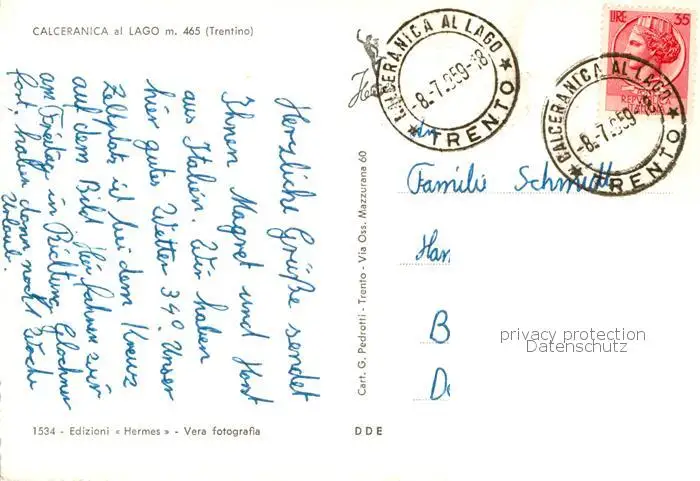 CALCERANICA al LAGO m. 465 (Trentino)
Herzliche Grüße sendet
Ihnen Magret und Horst
aus Italien. Wir haben
hier gutes Wetter 34° Unser
Zeltplatz ist bei dem Kreuz
auf dem Bild. Hir fahren wir
am Freitag in Richtung Glockner
fort, haben dann noch 1 Woche
Urlaub.
1534 - Edizioni « Hermes » - Vera fotografia
Cart. G. Pedrotti - Trento - Via Oss. Mazzurana 60
DDE
CALCERANICA AL LAGO
-8.-7.1959-18
* TRENTO *
LIRE 35
REPUBBLICA
ITALIANA
CALCERANICA AL LAGO
-8.-7.1959-18
* TRENTO *
An
Familie Schmidt
Han
B
D
privacy protection
Datenschutz